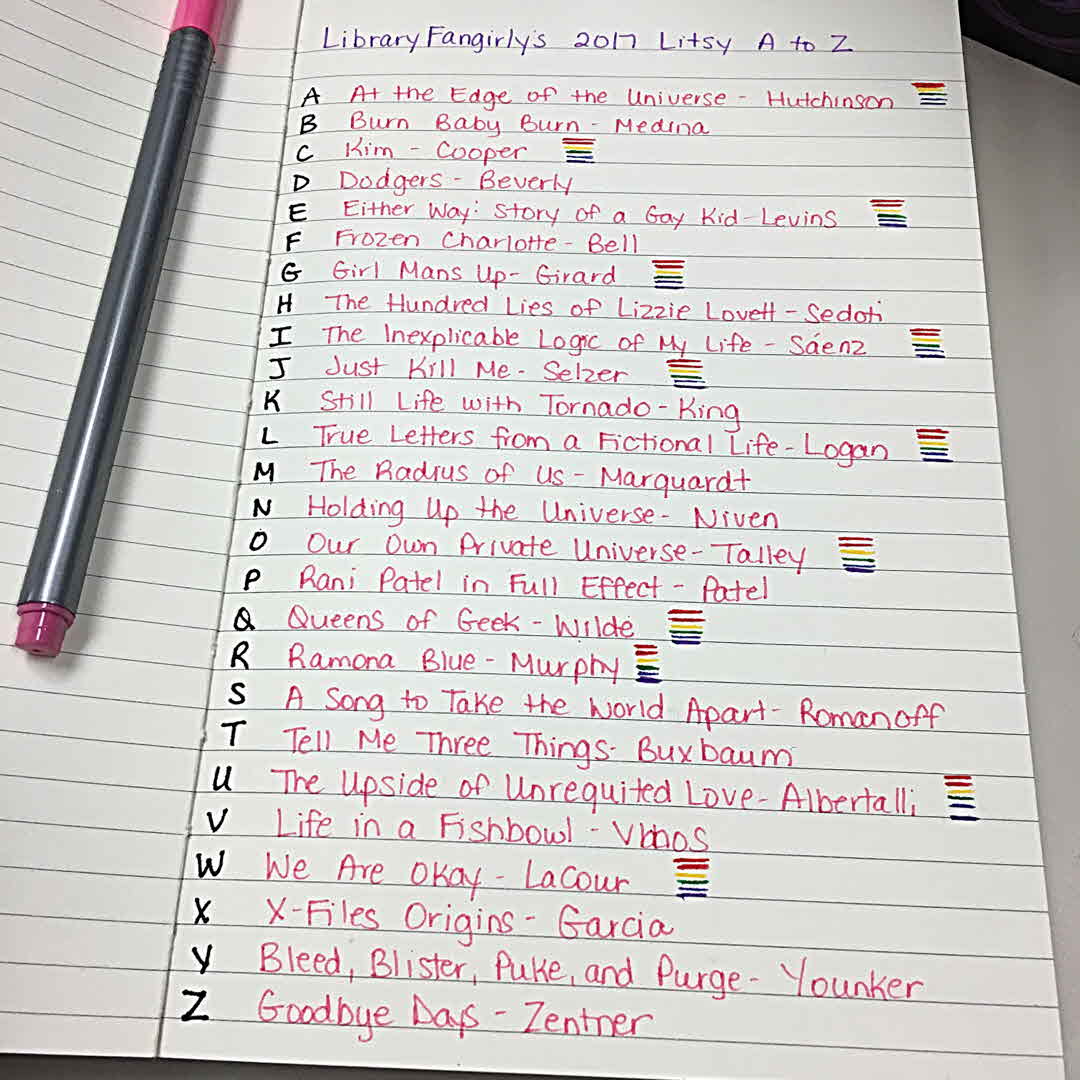 LibraryFangirly's 2017 Litsy A to Z
A At the Edge of the Universe - Hutchinson
B Burn Baby Burn - Medina
C Kim - Cooper
D Dodgers - Beverly
E Either Way: Story of a Gay Kid - Levins
F Frozen Charlotte - Bell
G Girl Mans Up - Girard
H The Hundred Lies of Lizzie Lovett - Sedoti
I The Inexplicable Logic of My Life - Sáenz
J Just Kill Me - Selzer
K Still Life with Tornado - King
L True Letters from a Fictional Life - Logan
M The Radius of Us - Marquardt
N Holding Up the Universe - Niven
O Our Own Private Universe - Talley
P Rani Patel in Full Effect - Patel
Q Queens of Geek - Wilde
R Ramona Blue - Murphy
S A Song to Take the World Apart - Romanoff
T Tell Me Three Things - Buxbaum
U The Upside of Unrequited Love - Albertalli
V Life in a Fishbowl -
W We Are Okay - LaCour
X X-Files Origins - Garcia
Y Bleed, Blister, Puke, and Purge - Younker
Z Goodbye Days - Zentner